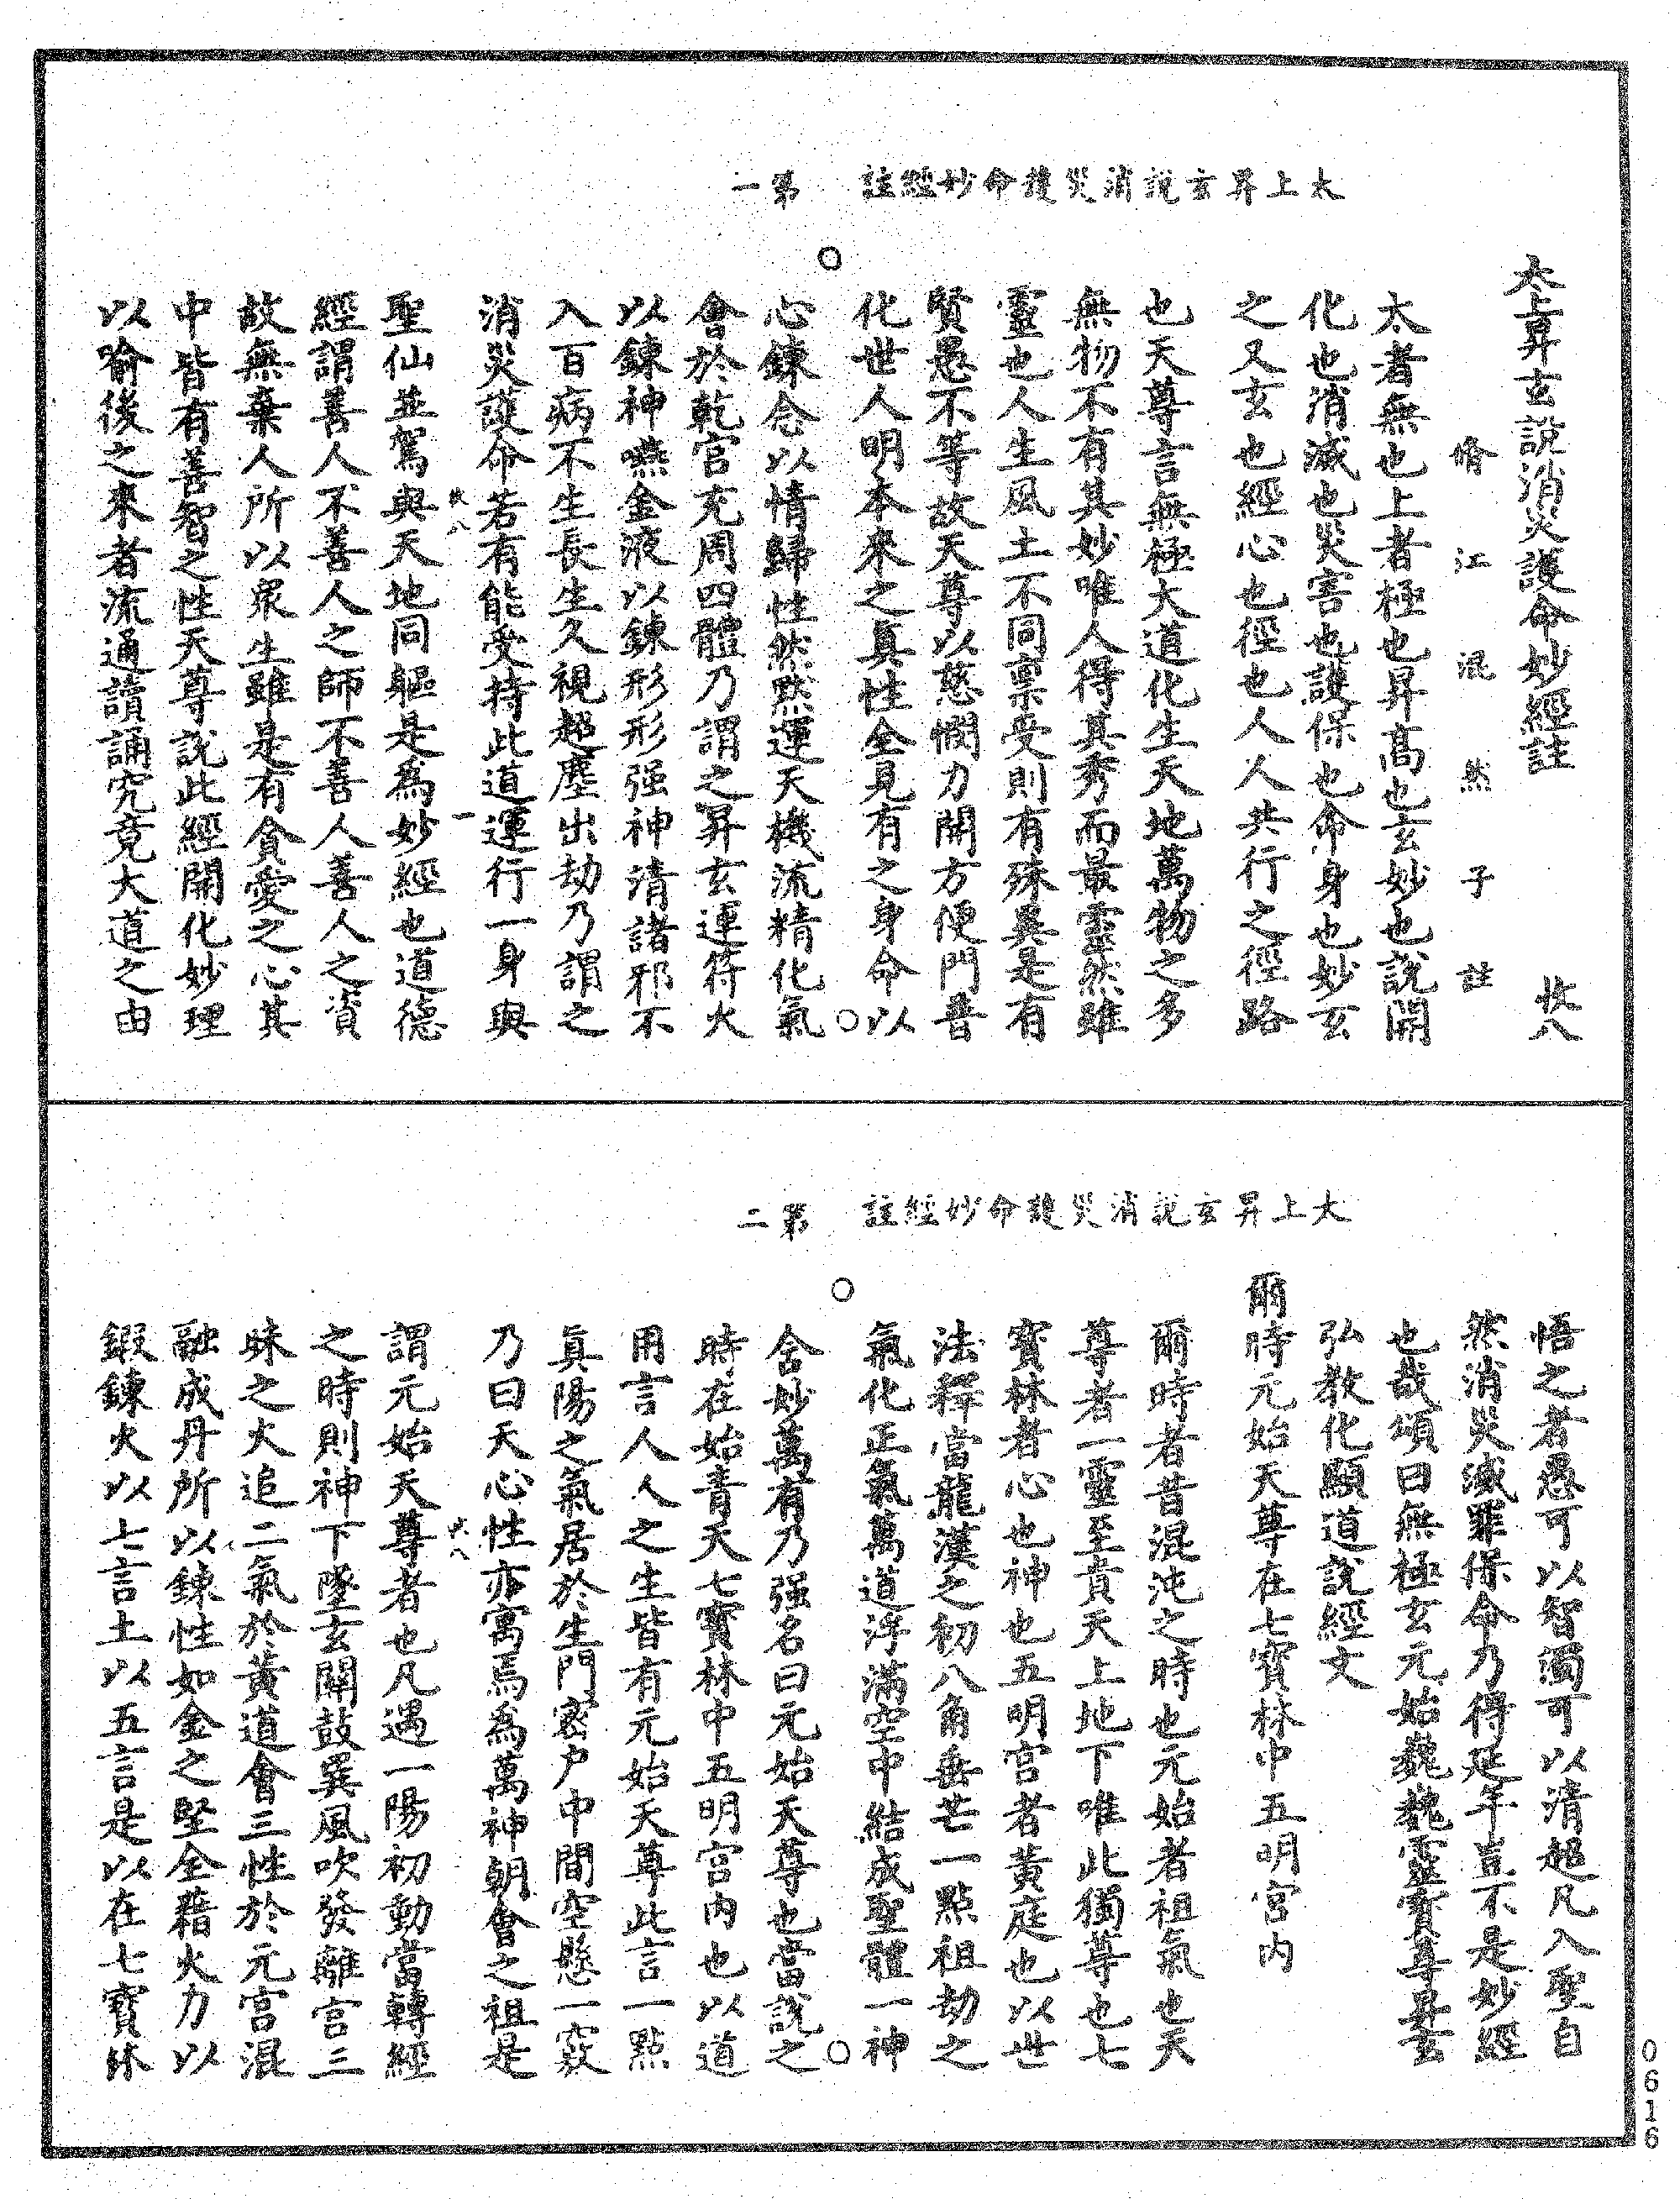 太上昇玄說消災護命妙經註　第一
太上昇玄說消災護命妙經註　攽八
脩江混然子註
太者無也上者極也昇高也玄妙也說開
化也消滅也災害也護保也命身也妙玄
之又玄也經心也徑也人人共行之徑路
也天尊言無極大道化生天地萬物之多
無物不有其妙唯人得其秀而最靈然雖
靈也人生風土不同稟受則有殊異是有
賢愚不等故天尊以慈憫力開方便門普
化世人明本來之真性全見有之身命以
心鍊念以情歸性然然運天機流精化氣
會於乾宮充周四體乃謂之昇玄運符火
以鍊神嚥金液以鍊形形强神清諸邪不
入百病不生長生久視超塵出劫乃謂之
消災護命若有能受持此道運行一身與
攽八　一
聖仙並駕與天地同軀是為妙經也道德
經謂善人不善人之師不善人善人之資
故無棄人所以眾生雖是有貪愛之心其
中皆有善智之性天尊說此經開化妙理
以喻後之來者流通讀誦究竟大道之由
太上昇玄說消災護命妙經註　第二
悟之者愚可以智濁可以清超凡入聖自
然消災滅罪保命乃得延年豈不是妙經
也哉頌曰無極玄元始巍巍靈寶尊昇玄
弘教化顯道說經文
爾時元始天尊在七寶林中五明宮內
爾時者昔混沌之時也元始者祖氣也天
尊者一靈至貴天上地下唯此獨尊也七
寶林者心也神也五明宮者黃庭也以世
法釋當龍漢之初八角垂芒一點祖劫之
氣化正氣萬道浮滿空中結成聖體一神
含妙萬有乃强名曰元始天尊也當說之
時在始青天七寶林中五明宮內也以道
用言人人之生皆有元始天尊此言一點
真陽之氣居於生門密户中間空懸一竅
乃曰天心性亦寓焉為萬神朝會之祖是
攽八
謂元始天尊者也凡遇一陽初動當轉經
之時則神下墜玄關鼓巽風吹發離宮三
昧之火追二氣於黃道會三性於元宮混
融成丹所以鍊性如金之堅全藉火力以
鍛鍊火以七言土以五言是以在七寶林
0616